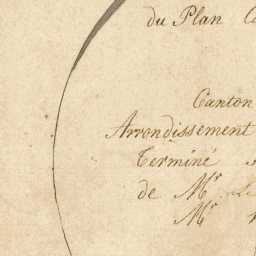 du Plan
Canton
Arrondissement
Terminé
de Mr
Mr